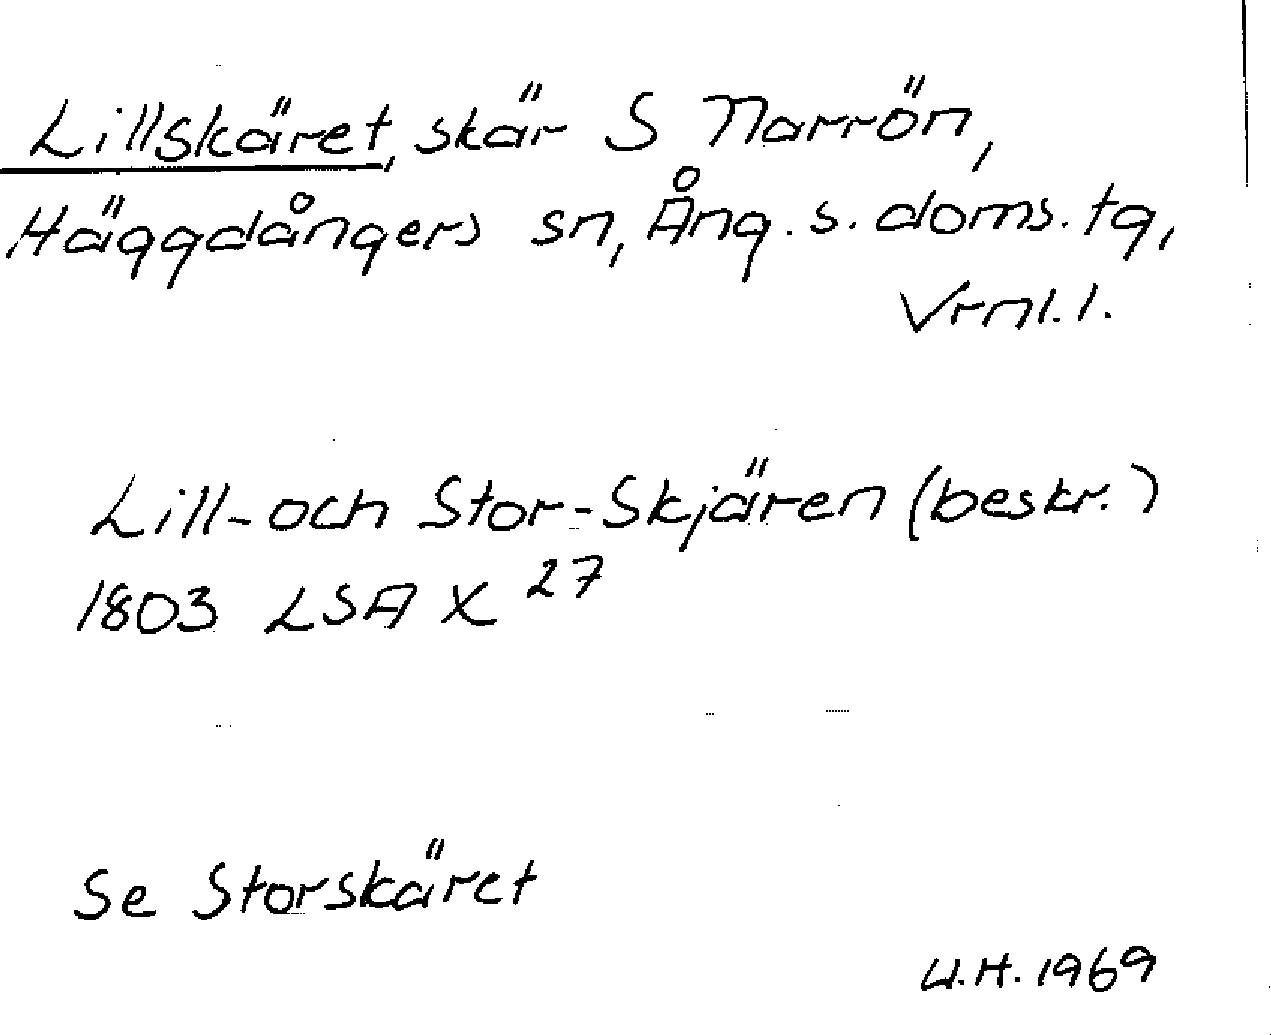 Lillskäret, skär S Norrön,
Häggdångers sn, Ång. s. doms. tg,
Vrnl. l.
Lill- och Stor-Skjären (beskr.)
1803 LSA X 27
Se Storskäret
U.H. 1969